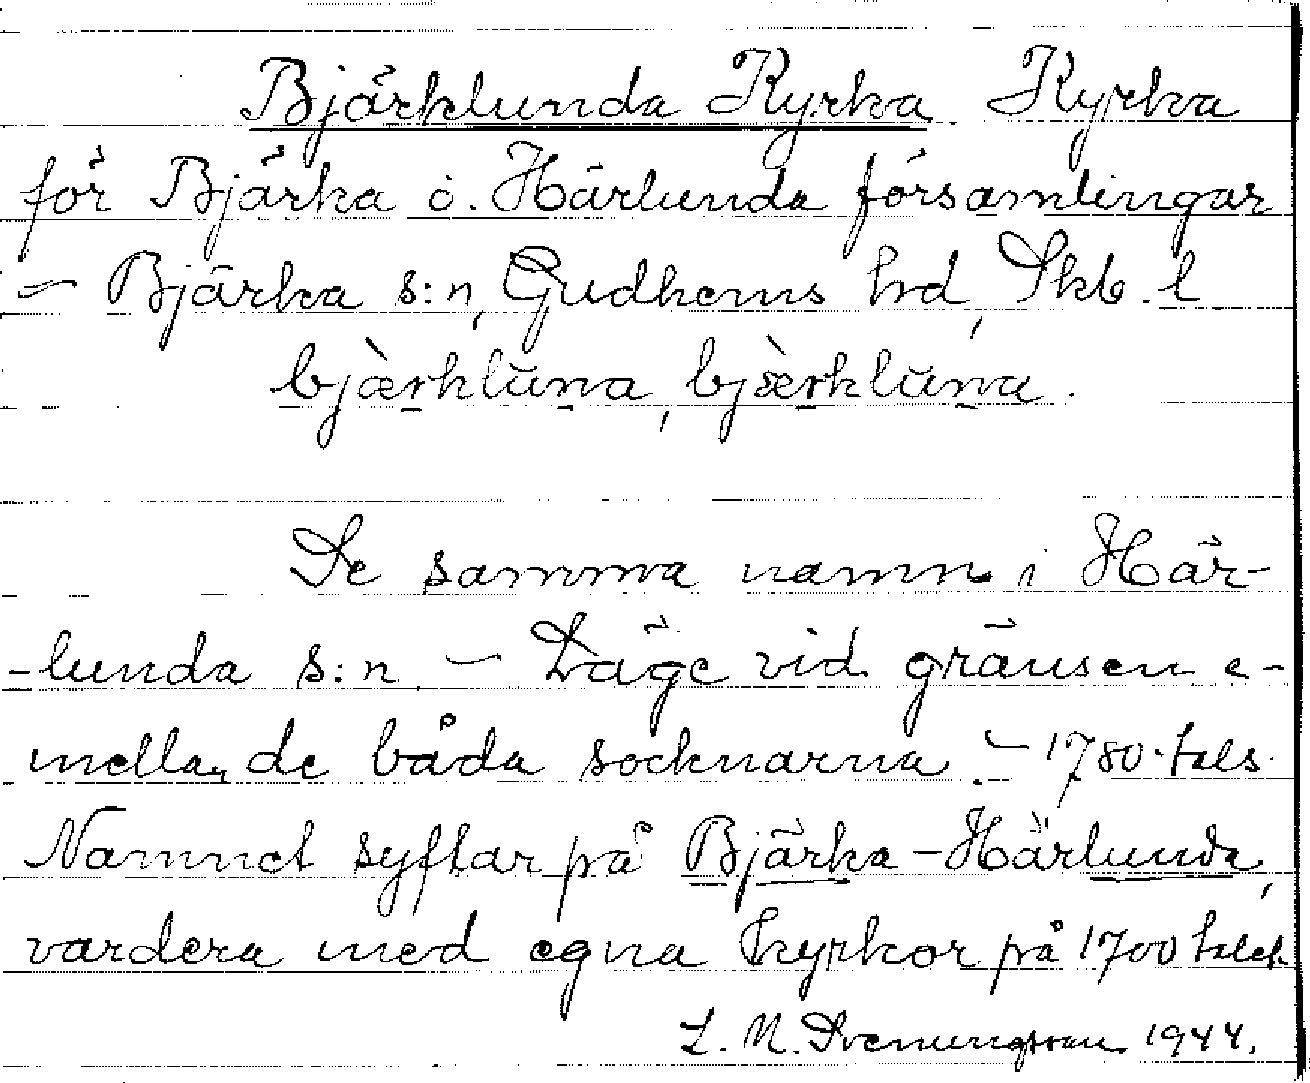 Bjärklunda Kyrka. Kyrka
för Bjärka o. Härlunda församlingar
- Bjärka s:n, Gudhems hrd, Skb. l
bjæ̀rklŭna, bjæ̀rklŭna.
Se samma namn i Här-
-lunda s:n. - Läge vid gränsen e-
mellan de båda socknarna. - 1780-tals.
Namnet syftar på Bjärka-Härlunda,
vardera med egna kyrkor på 1700 talet
L. M. Svenungsson 1944.